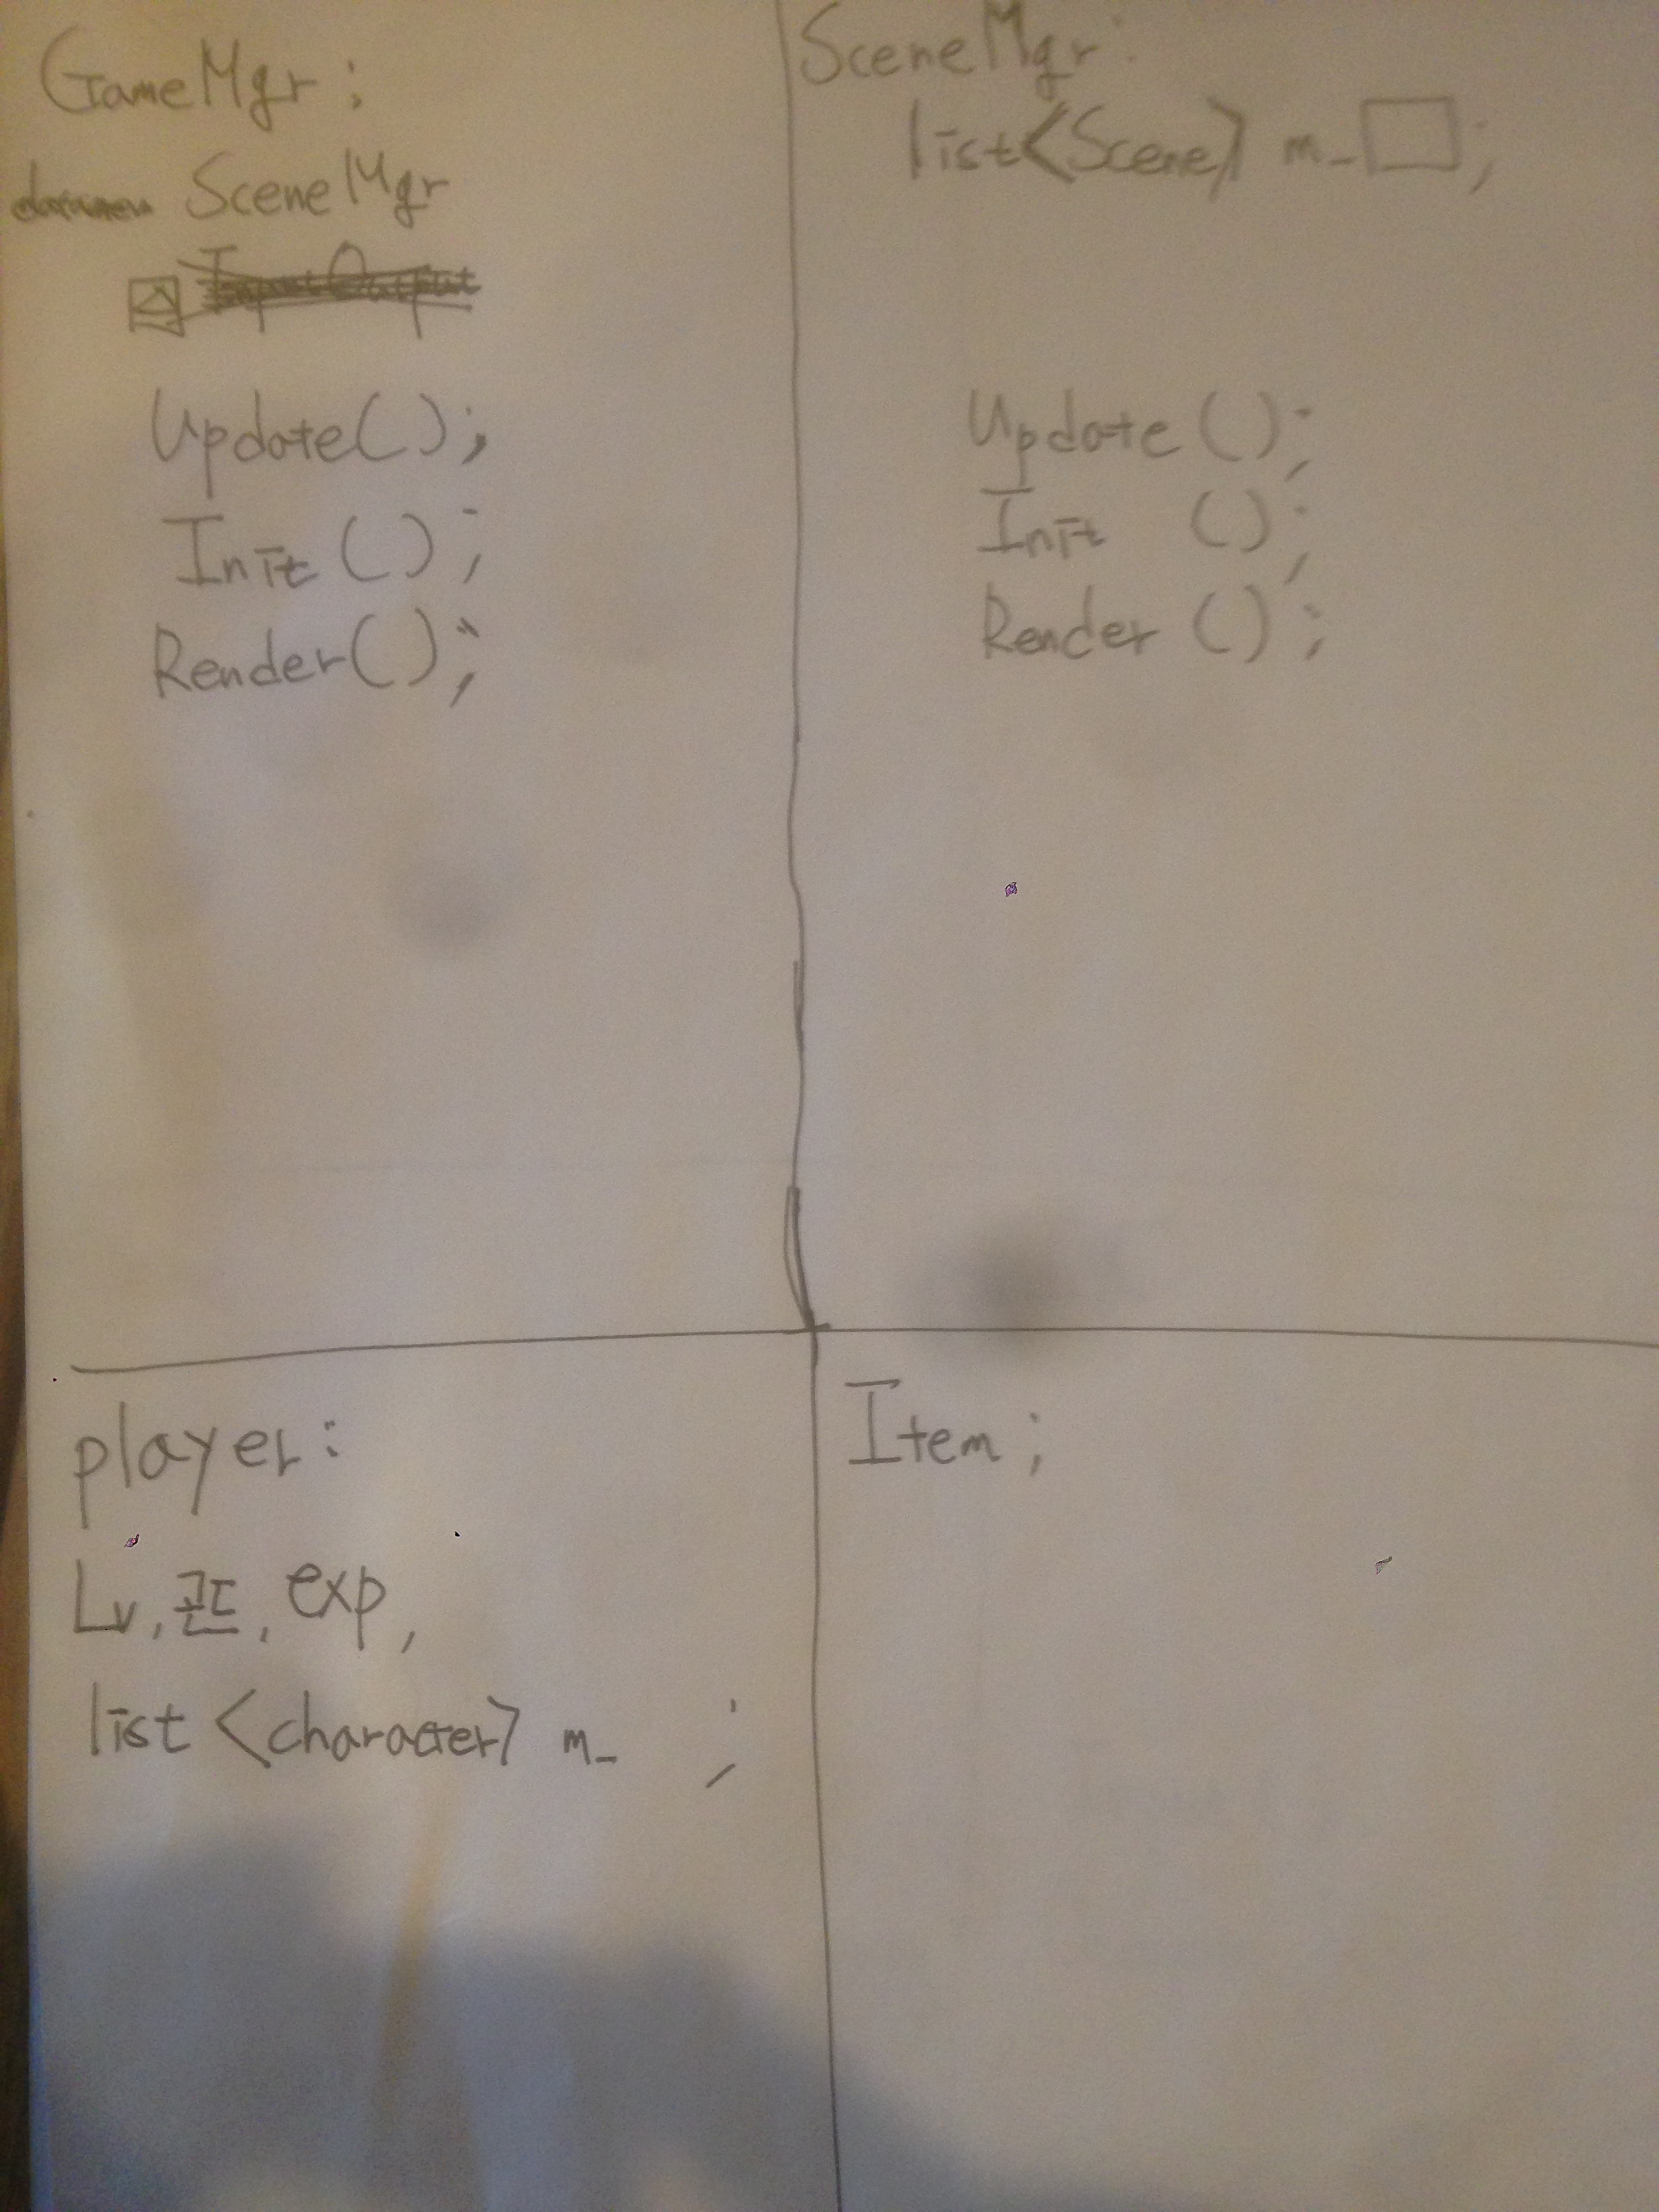 GameMgr:
SceneMgr
Update();
Init();
Render();
SceneMgr:
list<Scene> m_ ;
Update();
Init ();
Render ();
player:
Lv, 골드, exp,
list <character> m_ ;
Item;